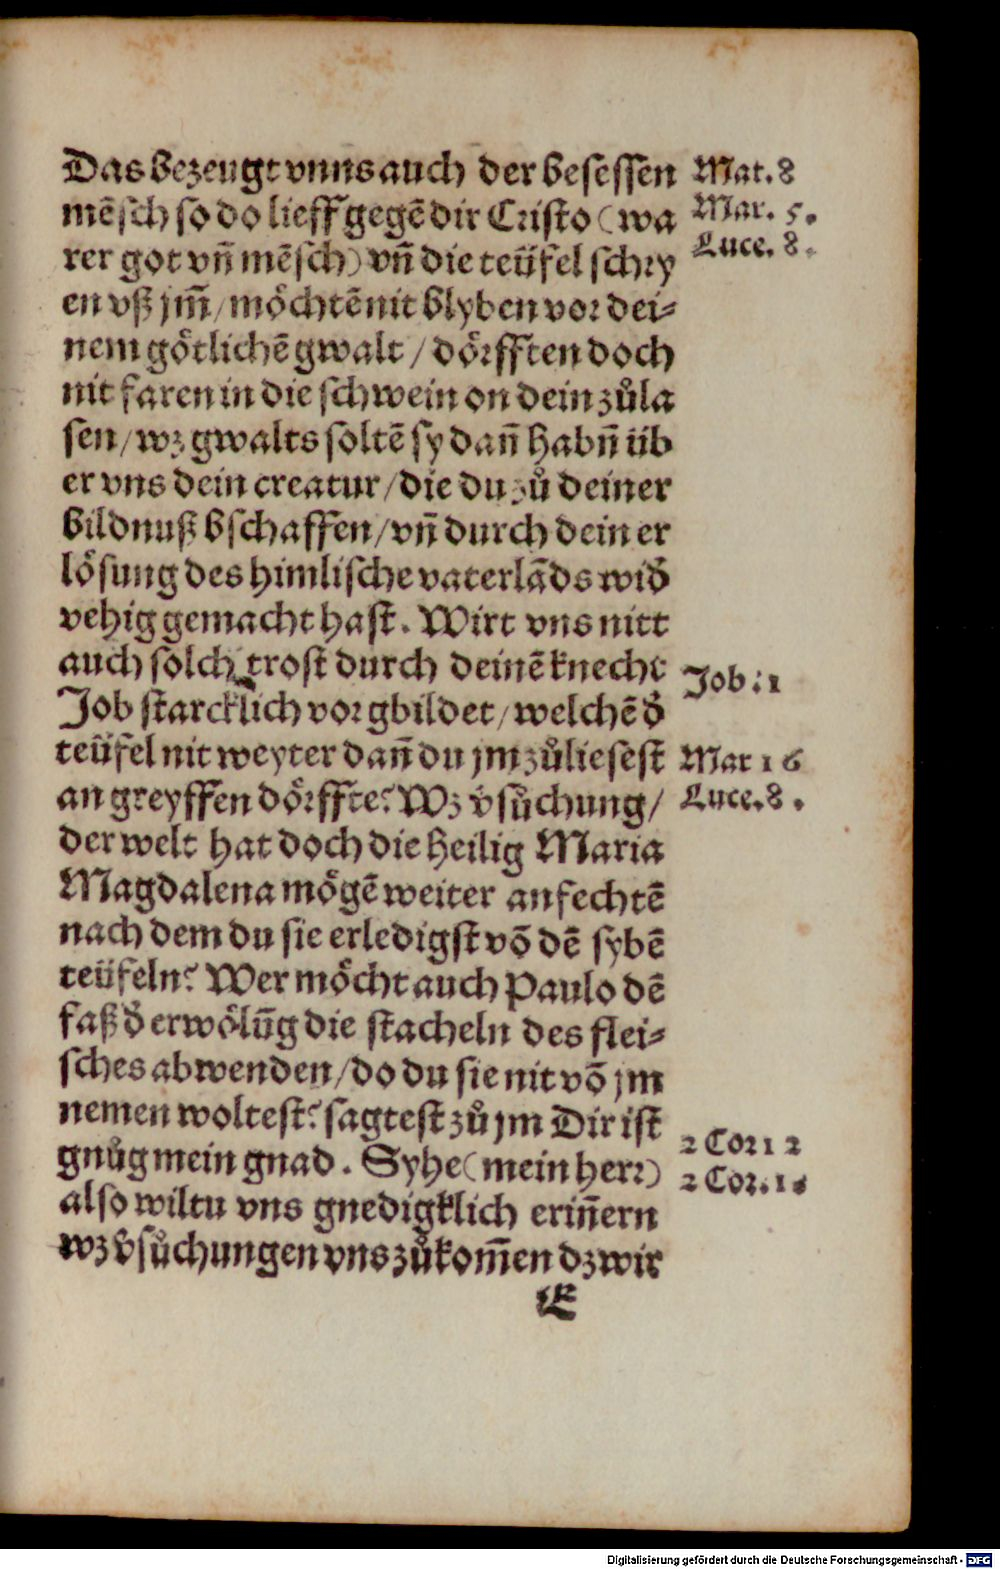 Das bezeugt vnns auch der besessen
mēsch so do lieff gegē dir Cristo (wa
rer got vn̄ mēsch) vn̄ die teüfel schry
en vß jm̄ / möchtē nit blyben vor dei⸗
nem götlichē gwalt / dörfften doch
nit faren in die schwein on dein zůla
sen / wz gwalts soltē sy dan̄ habn̄ üb
er vns dein creatur / die du zů deiner
bildnuß bschaffen / vn̄ durch dein er
lösung des himlische vaterlāds wid̄
vehig gemacht hast. Wirt vns nitt
auch solch trost durch deinē knecht
Job starcklich vor gbildet / welchē d̄
teüfel nit weyter dan̄ du jm zůliesest
an greyffen dörffte? Wz v̄sůchung /
der welt hat doch die heilig Maria
Magdalena mögē weiter anfechtē
nach dem du sie erledigst vō dē sybē
teüfeln? Wer möcht auch Paulo dē
faß d̄ erwölūg die stacheln des flei⸗
sches abwenden / do du sie nit vō jm
nemen woltest? sagtest zů jm Dir ist
gnůg mein gnad. Syhe (mein herr)
also wiltu vns gnedigklich erin̄ern
wz v̄sůchungen vns zůkom̄en dz wir
E
Mat. 8
Mar. 5.
Luce. 8.
Job: 1
Mar 16
Luce. 8.
2 Cor 12
2 Cor. 1
Digitalisierung gefördert durch die Deutsche Forschungsgemeinschaft - DFG